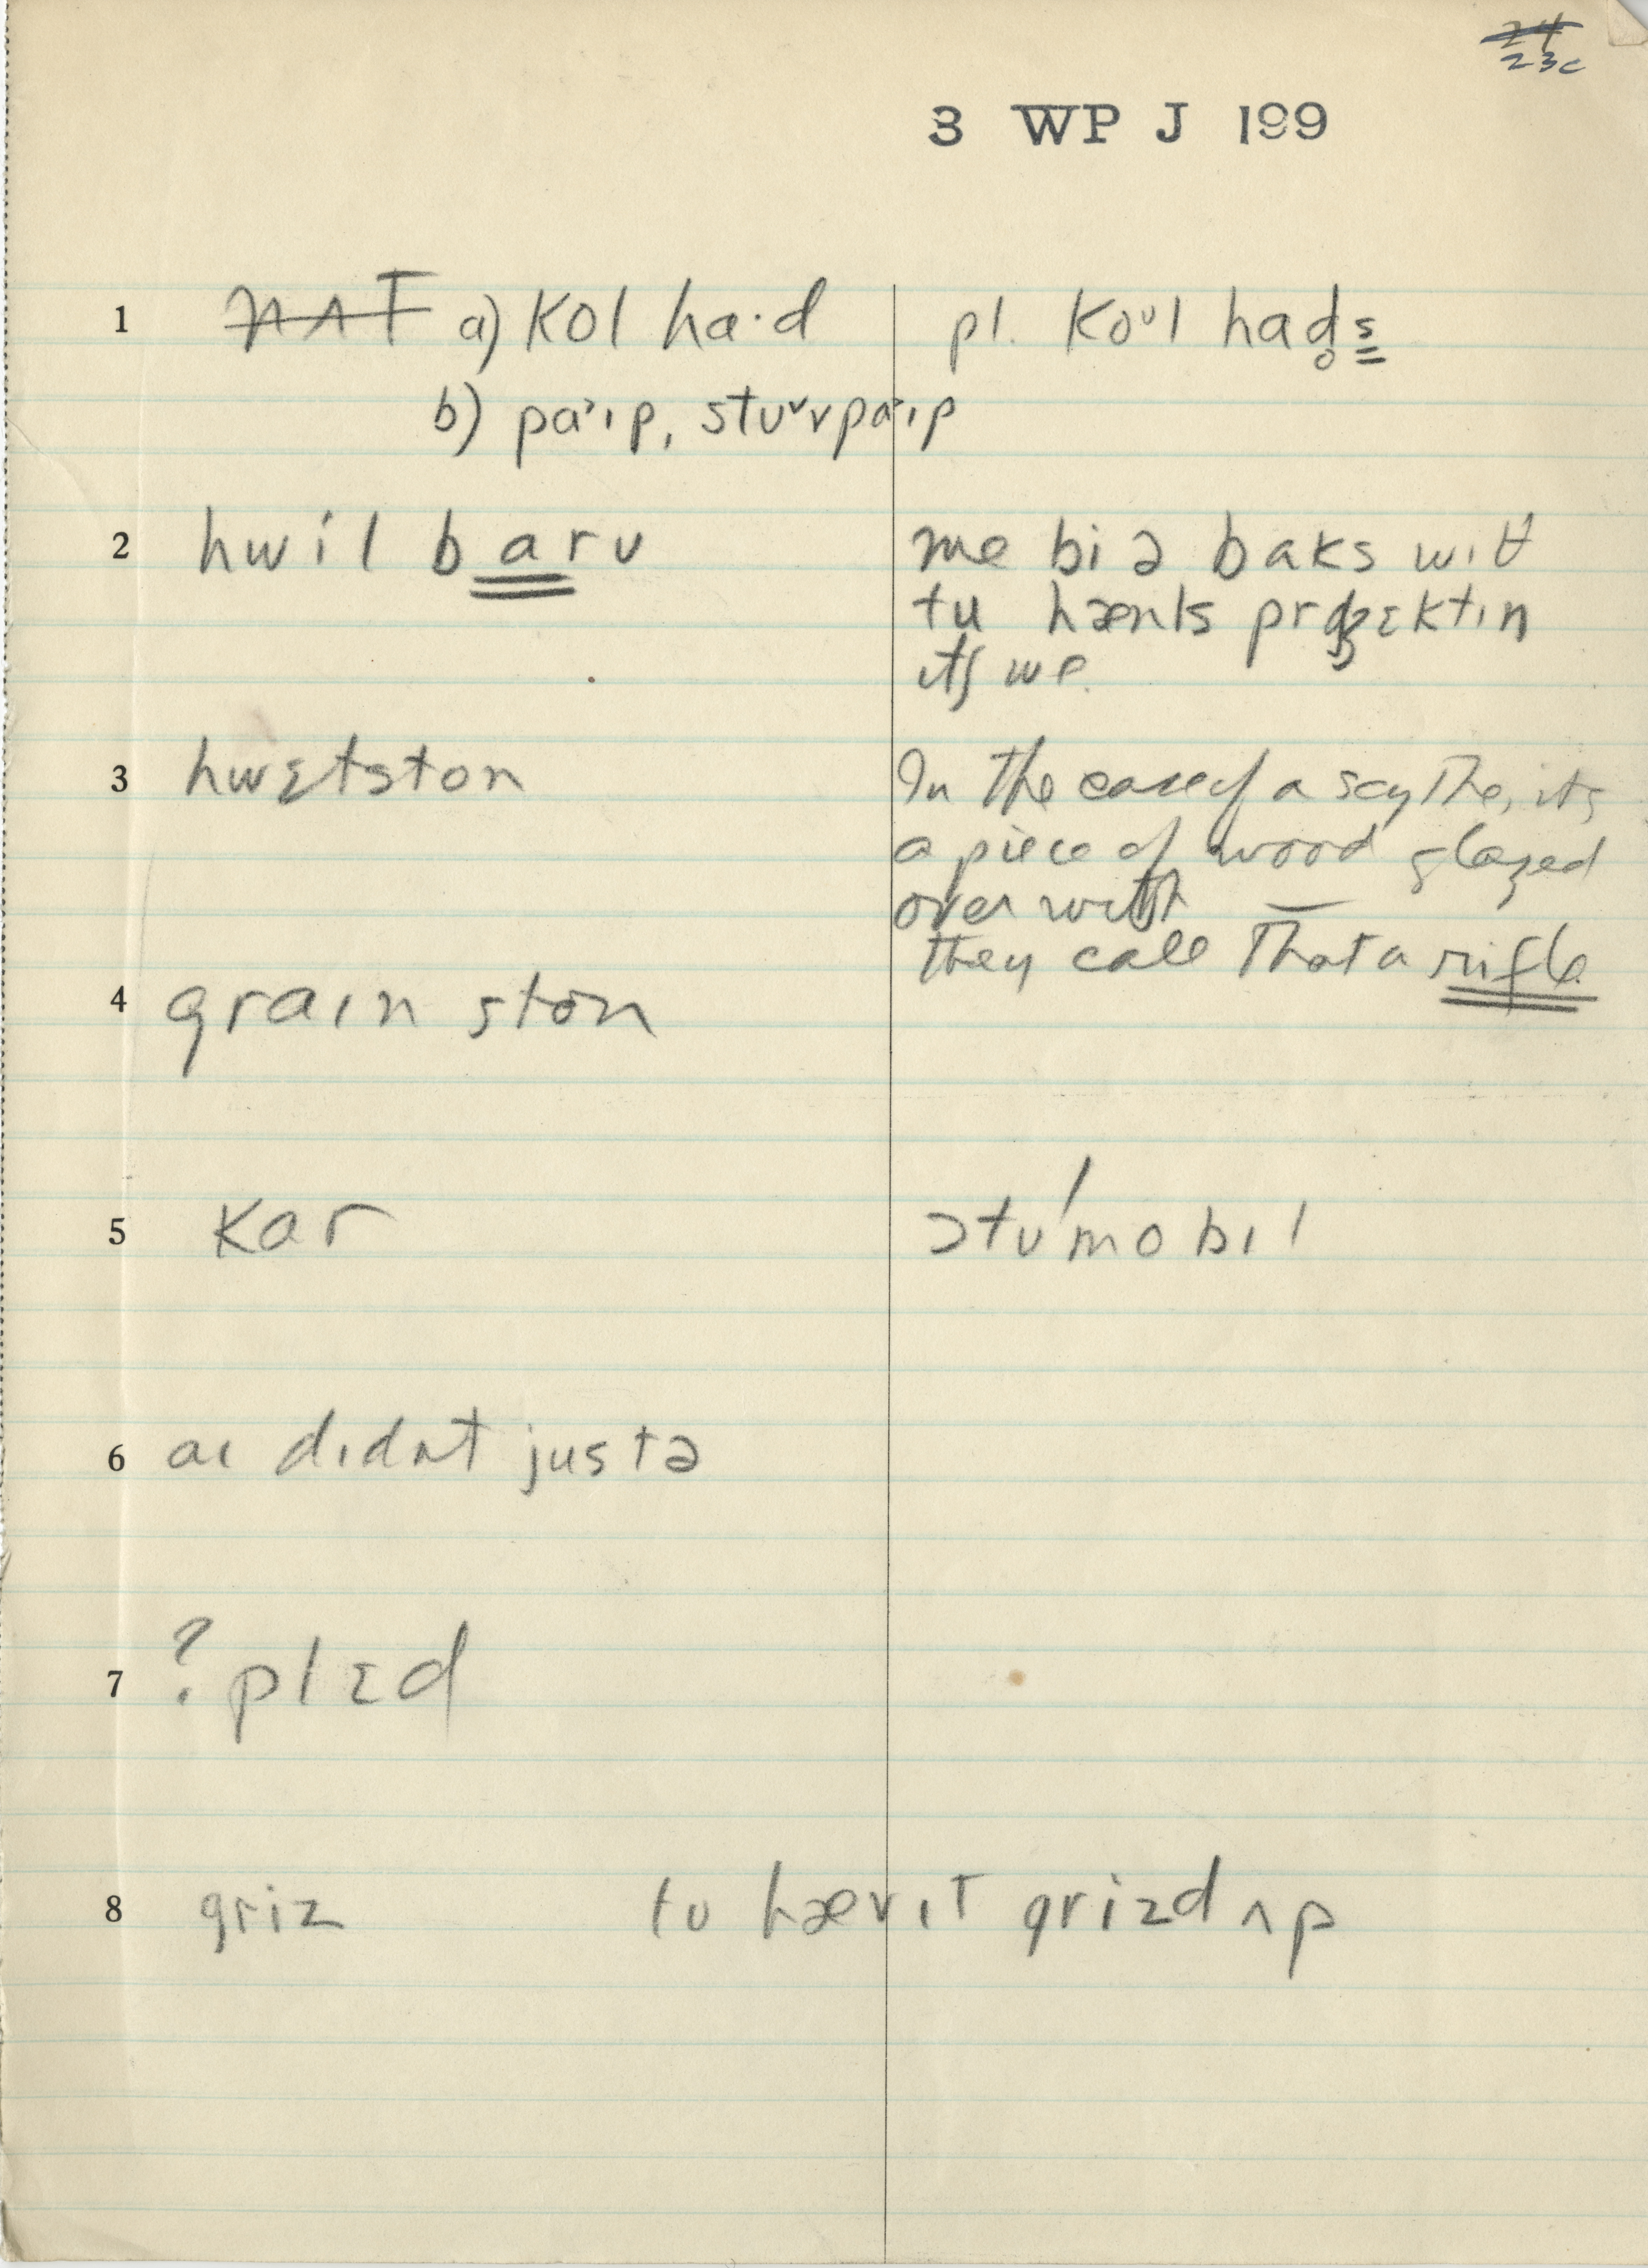 24
23c
3 WP J 199
1 nʌt a) kol ha·d pl. koᵘl had̥s
b) pa'ɪp, stuᵛvpa'ɪp
2 hwil barʊ me bi ə baks wɪθ
tu hænls prədʒɛktɪn
ɪts we.
3 hwɛtston In the case of a scythe, its
a piece of wood glazed
over with —
they call that a rifle
4 graɪn ston
5 kar ɔtʊ'mobɪl
6 aɪ dɪdnt justə
7 ? plɛd
8 griz tʊ hæv ɪt grizd ʌp